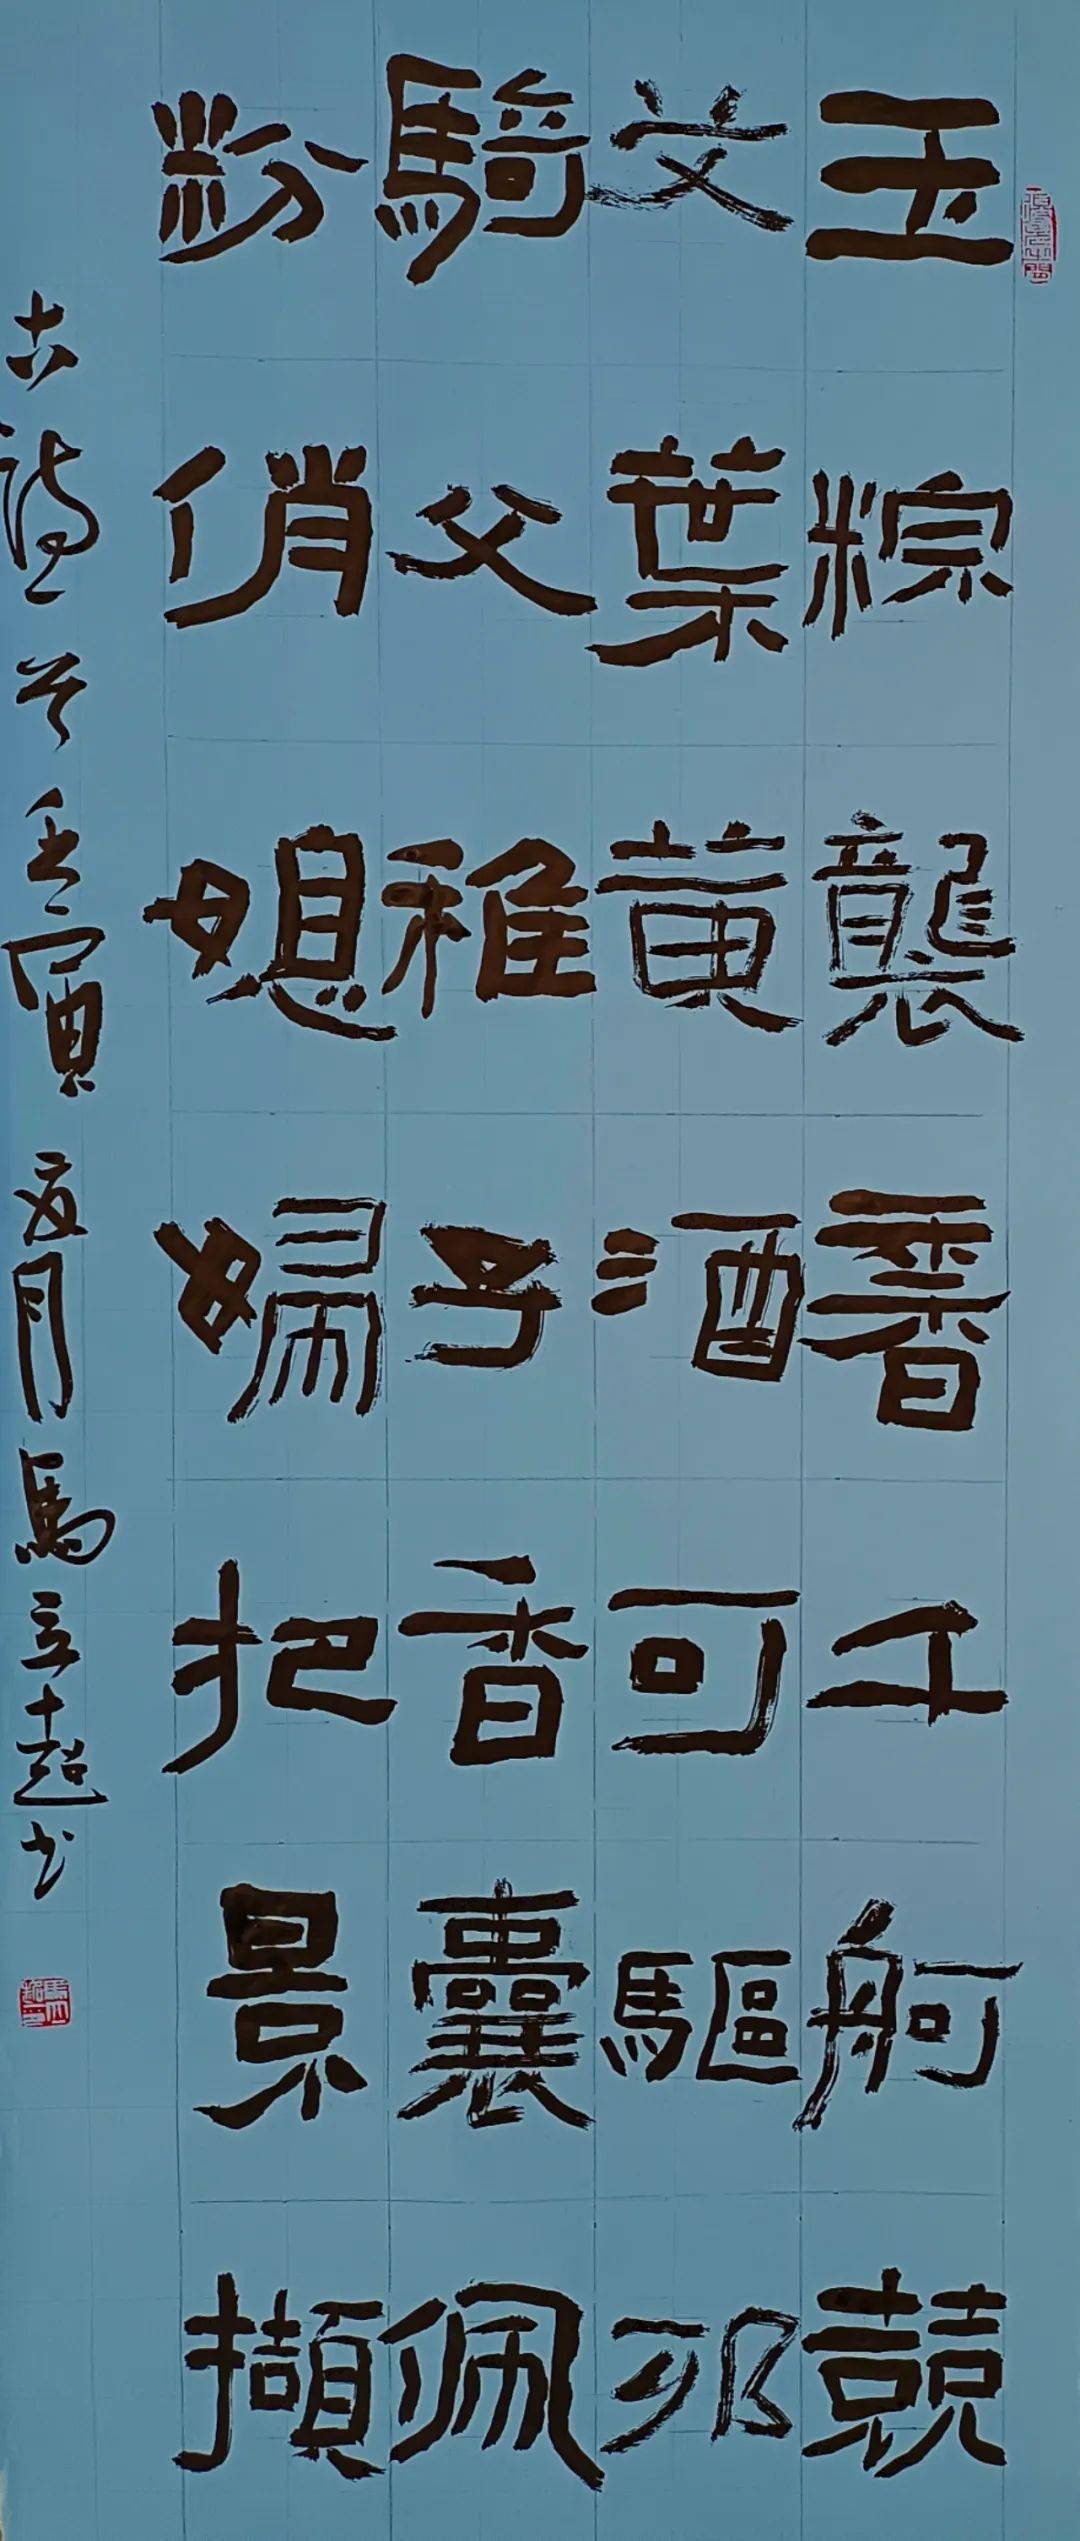 玉粽襲香千舸競
艾葉黃酒可驅邪
騎父稚子香囊佩
粉俏媳婦把景擷
古詩一首壬寅夏月馬立超书